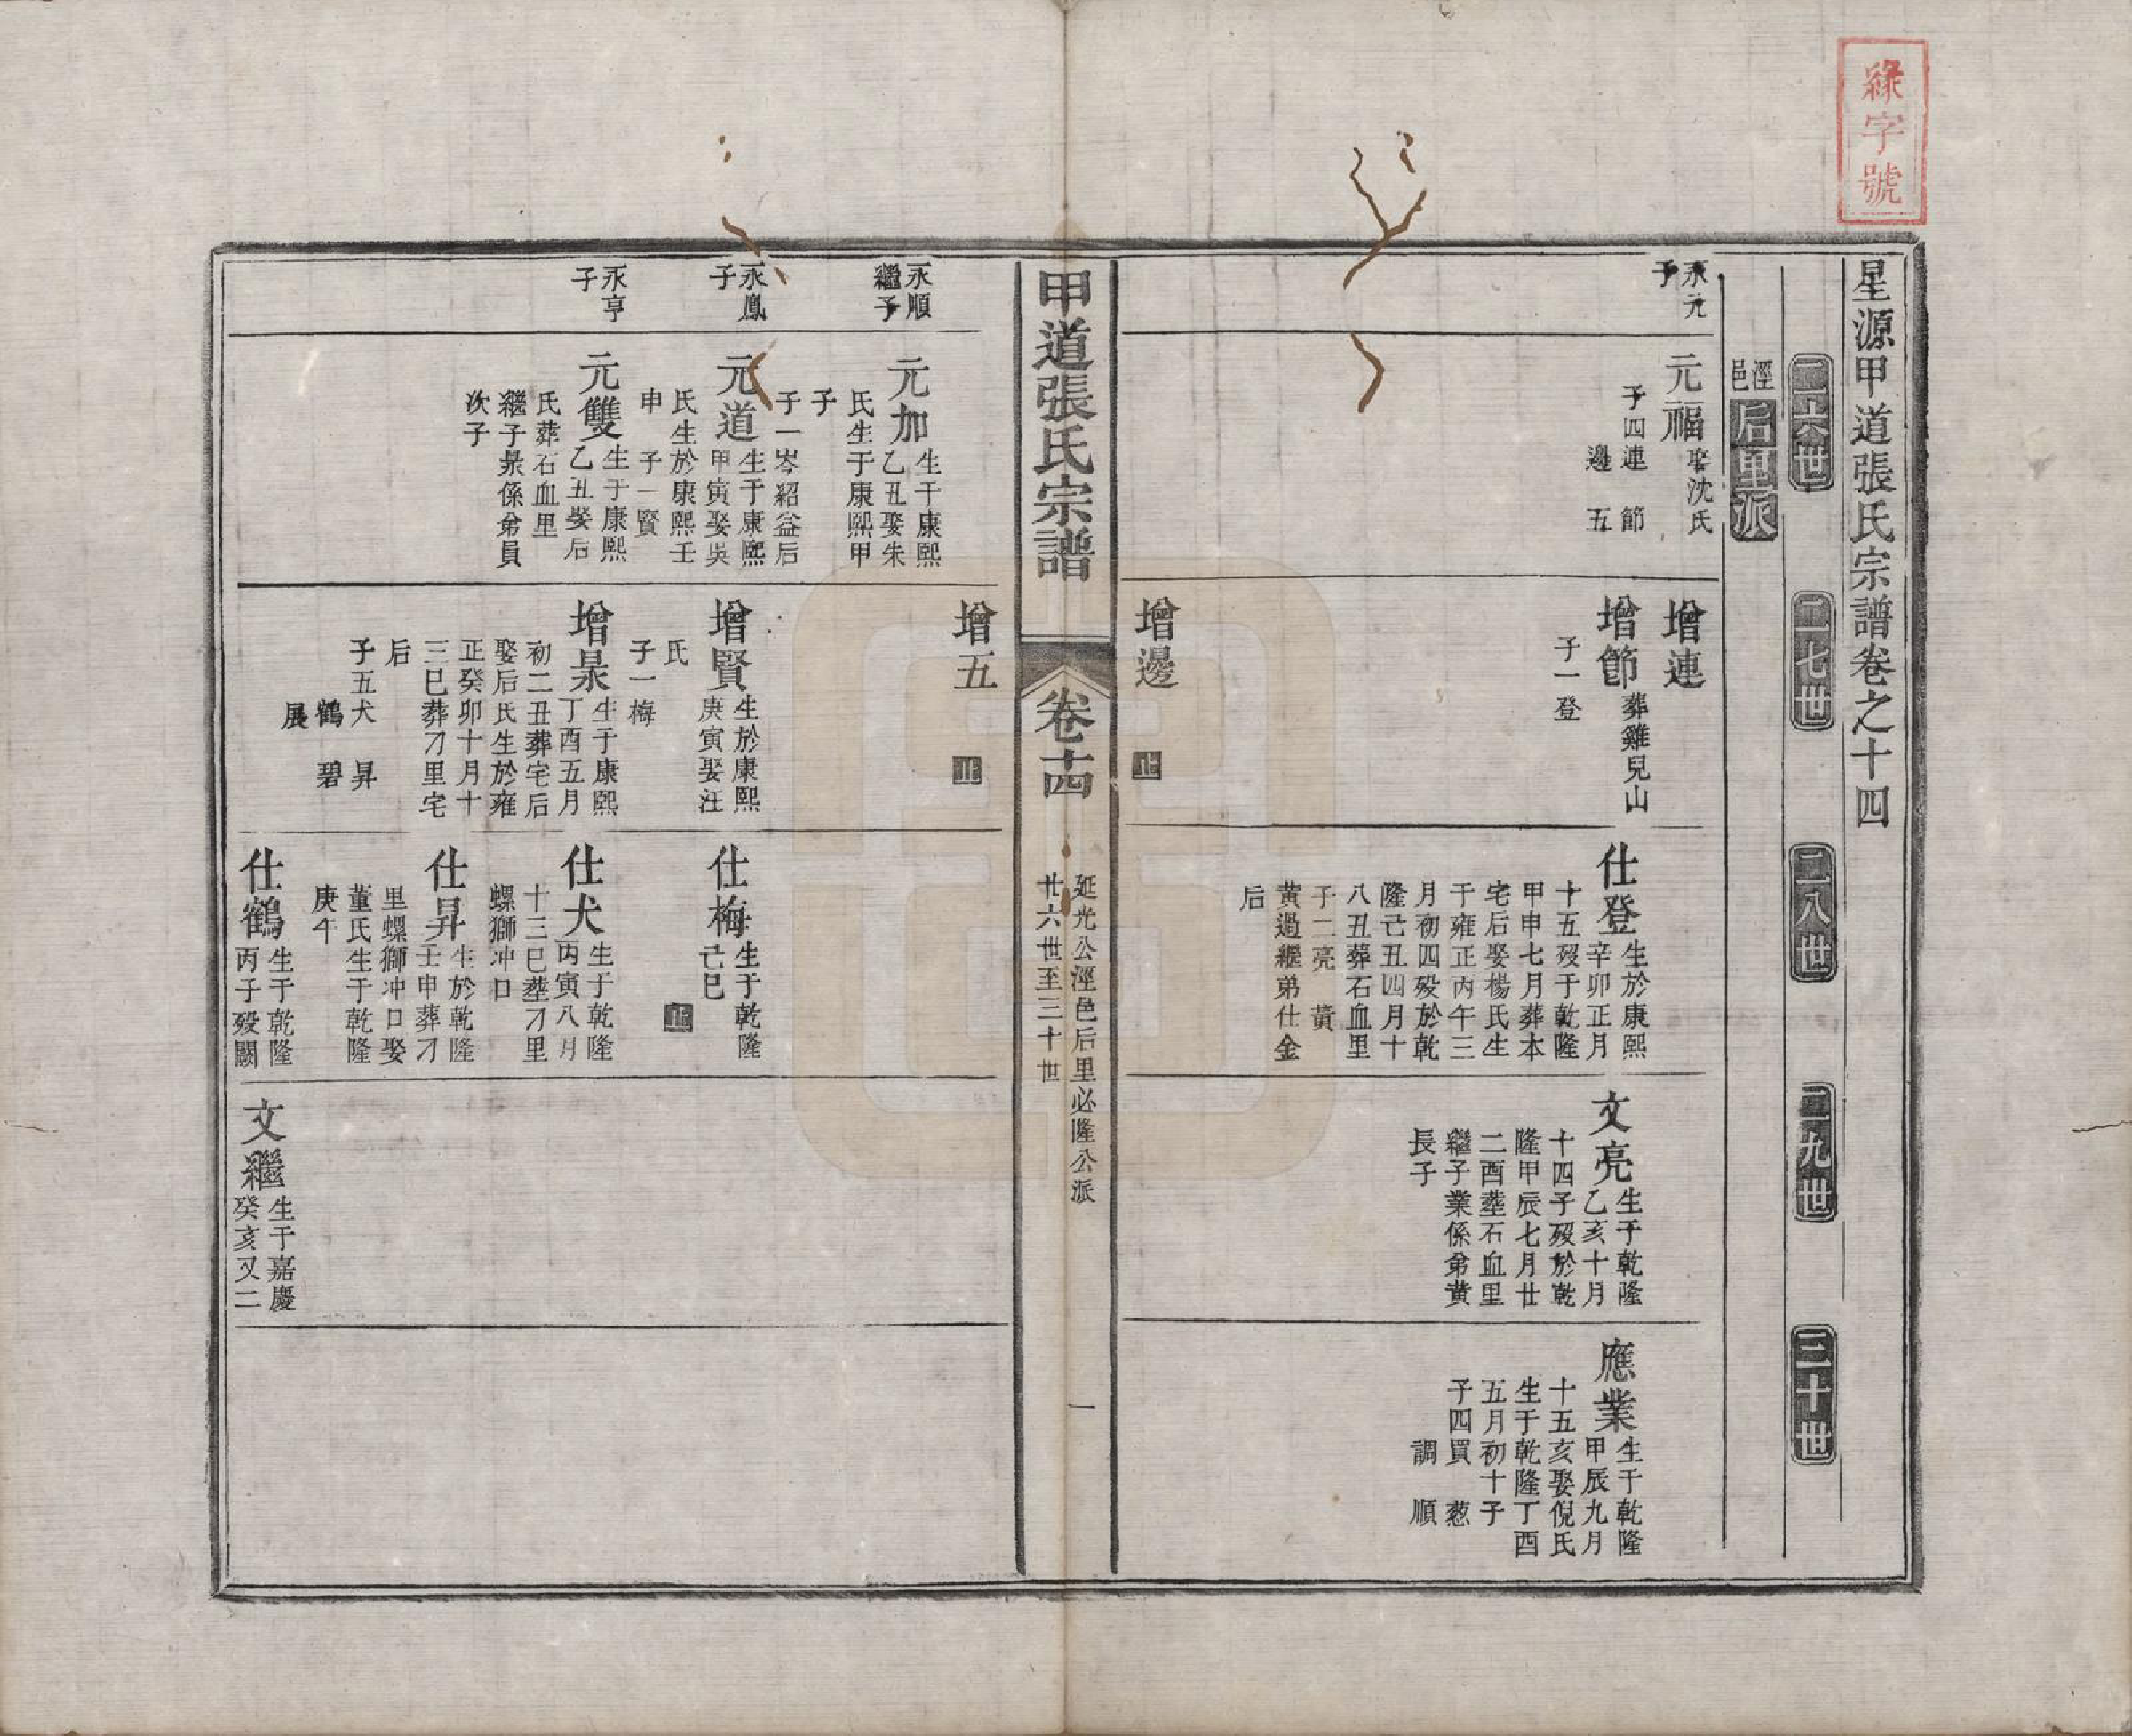 綵字號
星源甲道張氏宗譜卷之十四
二六世
二七世
二八世
二九世
三十世
涇邑
后里派
永元
子
元福
娶沈氏
子四連 節
邊 五
增連
增節
葬雞兒山
子一登
仕登
生於康熙
辛卯正月
十五歿于乾隆
甲申七月葬本
宅后娶楊氏生
于雍正丙午三
月初四歿於乾
隆己丑四月十
八丑葬石血里
子二亮 黃
黃過繼弟仕金
后
文亮
生于乾隆
乙亥十月
十四子歿於乾
隆甲辰七月廿
二酉塟石血里
繼子業係弟黃
長子
應業
生于乾隆
甲辰九月
十五亥娶倪氏
生于乾隆丁酉
五月初十子
子四買 葱
調 順
增邊
止
甲道張氏宗譜
卷十四
延光公涇邑后里必隆公派
廿六世至三十世
一
增五
止
永順
繼子
元加
生于康熙
乙丑娶朱
氏生于康熙甲
子
子一岑紹益后
永鳳
子
元道
生于康熙
甲寅娶吳
氏生於康熙壬
申 子一賢
增賢
生於康熙
庚寅娶汪
氏
子一梅
仕梅
生于乾隆
己巳
止
永亨
子
元雙
生于康熙
乙丑娶后
氏葬石血里
繼子景係弟員
次子
增景
生于康熙
丁酉五月
初二丑葬宅后
娶后氏生於雍
正癸卯十月十
三巳葬刀里宅
后
子五犬 昇
鶴 碧
展
仕犬
生于乾隆
丙寅八月
十三巳塟刀里
螺獅冲口
仕昇
生於乾隆
壬申葬刀
里螺獅冲口娶
董氏生于乾隆
庚午
仕鶴
生于乾隆
丙子歿闕
文繼
生于嘉慶
癸亥又二